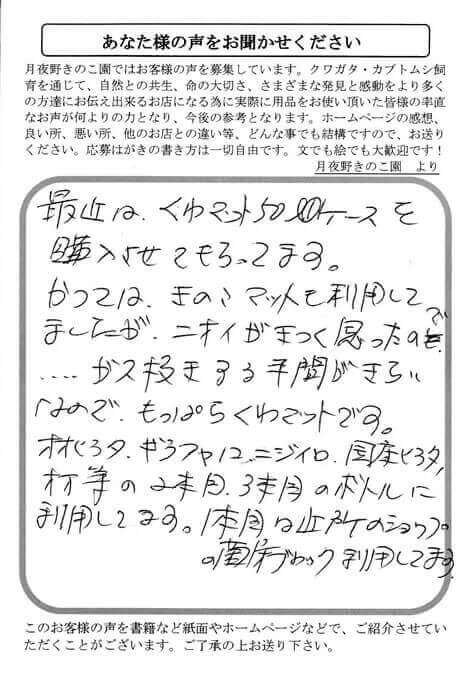 あなた様の声をお聞かせください
月夜野きのこ園ではお客様の声を募集しています。クワガタ・カブトムシ飼
育を通じて、自然との共生、命の大切さ、さまざまな発見と感動をより多く
の方達にお伝え出来るお店になる為に実際に用品をお使い頂いた皆様の率直
なお声が何よりの力となり、今後の参考となります。ホームページの感想、
良い所、悪い所、他のお店との違い等、どんな事でも結構ですので、お送り
ください。応募はがきの書き方は一切自由です。文でも絵でも大歓迎です！
月夜野きのこ園　より
最近は、くわマット50ℓケースを
購入させてもらってます。
かつては、きのこマットも利用して
ましたが、ニオイがきつく思ったので
‥‥ガス抜きする手間がきらい
なので、もっぱらくわマットです。
オオヒラタ、ギラファ、ニジイロ、国産ヒラタ、
オオ等の2本目、3本目のボトルに
利用してます。1本目は近所のショップ
の菌床ブロック利用してます。
このお客様の声を書籍など紙面やホームページなどで、ご紹介させてい
ただくことがございます。ご了承の上お送り下さい。